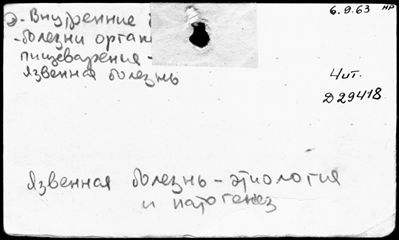 - Внутренние
- болезни
пищеварения -
язвенная болезнь
6.9.63 НР
4 ит.
Д 29418
Язвенная болезнь - этиология
и патогенез